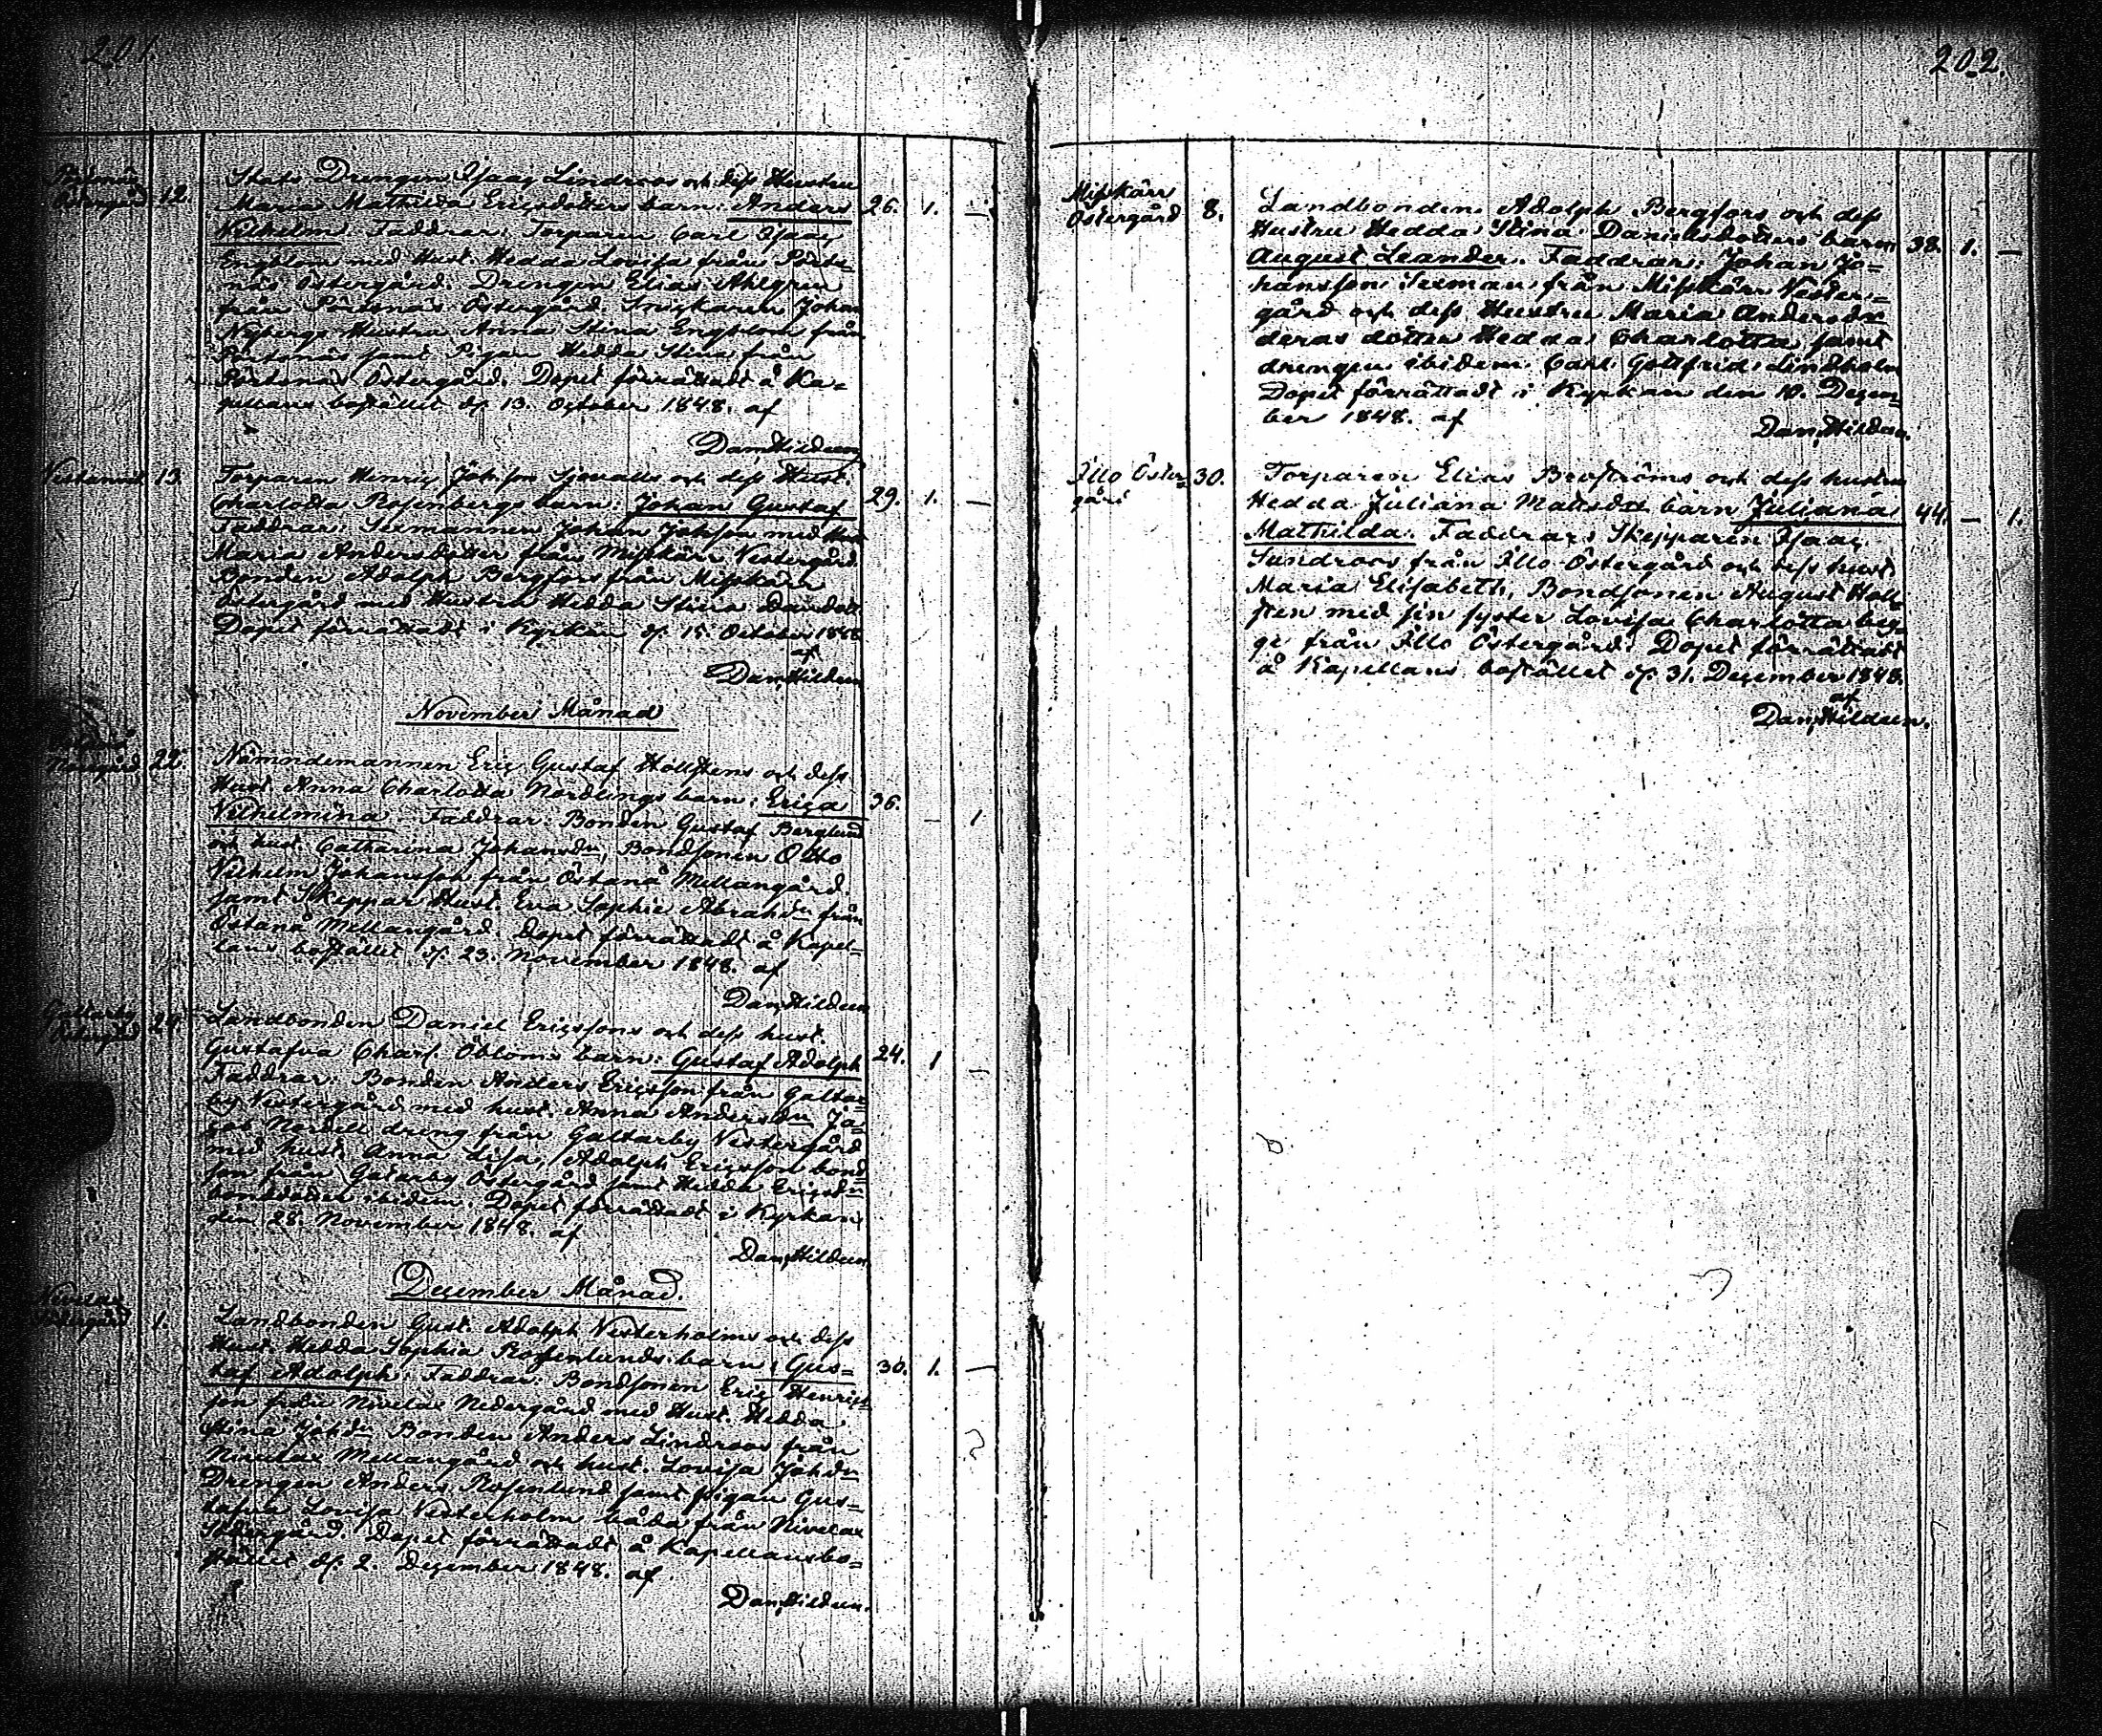 201.
12. Stats Drengen Isaac Lindroos och dess Hustru
Maria Mathilda Ericsdotters barn: Anders 26. 1. —
Vilhelm. Faddrar: Torparen Carl Isaac
Engblom med Hust. Hedda Lovisa från
näs Östergård. Drengen Elias Ahlgren
från Östergård. Snickaren Johan
Nybergs Hustru Anna Stina Engblom från
samt Pigan Hedda Stina från
Östergård. Dopet förrättadt å Ka=
pellans bostället d. 13. October 1848. af
Dan. Hildeen
13. Torparen Henric Joh:son Sjövalls och dess Hust.
Charlotta Rosenbergs barn: Johan Gustaf 29. 1. —
Faddrar: Sexmannen Johan Johsson med Hust
Maria Andersdotter från Misskärr Vestergård
Bonden Adolph Bergfors från Misskärr
Östergård med Hustru Hedda Stina Dansdott
Dopet förrättadt i Kyrkan d. 15. October 1848
af
Dan. Hildeen
November Månad
22. Nämndemannen Eric Gustaf Hollstens och dess
Hust. Anna Charlotta Nordlings barn: Erica 36. — 1
Vilhelmina. Faddrar: Bonden Gustaf Berglund
och hust. Catharina Johansdr, Bondsonen Otto
Vilhelm Johansson från Östanå Mellangård
samt Skeppar Hust. Eva Sophie Abrahdr från
Östanå Mellangård. Dopet förrättadt å Kapel=
lans bostället d. 23. November 1848. af
Dan. Hildeen
Galtarby
Östergård Landbonden Daniel Ericssons och dess hust.
Gustafva Charl. Öbloms barn: Gustaf Adolph 24. 1 —
Faddrar: Bonden Anders Ericsson från Galtar=
by Vestergård med hust. Anna Andersdr Ja=
cob Nordell dreng från Galtarby Vestergård
med hust. Anna Lisa, Adolph Ericsson bond
son från Galtarby Östergård samt Hedda Ericsdr
bonddotter ibidem. Dopet förrättadt i Kyrkan
den 28. November 1848. af
Dan. Hildeen
December Månad.
1. Landbonden Gust. Adolph Vesterholms och dess
Hust. Hedda Sophia Rosenlunds barn: Gus= 30. 1. —
taf Adolph. Faddrar: Bondsonen Eric Henrics
son från Nivelax Nedergård med Hust. Hedda
Stina Johdr Bonden Anders Lindroos från
Nivelax Mellangård och hust. Lovisa Johdr
Drengen Anders Rosenlund samt pigan Gus=
tafva Lovisa Vesterholm båda från Nivelax
Södergård. Dopet förrättadt å Kapellansbo=
stället d. 2. December 1848. af
Dan. Hildeen.
202.
Misskärr
Östergård 8. Landbonden Adolph Bergfors och dess
Hustru Hedda Stina Danielsdotters barn 38. 1. —
August Leander. Faddrar: Johan Jo=
hansson Sexman från Misskärr Vester=
gård och dess Hustru Maria Andersdr
deras dotter Hedda Charlotta samt
drengen ibidem Carl Gottfrid Lindholm
Dopet förrättadt i Kyrkan den 10. Decem=
ber 1848. af
Dan. Hildeen.
Illo Öster=
gård 30. Torparen Elias Bergströms och dess hustru
Hedda Juliana Matsdotters barn Juliana 44. — 1.
Mathilda. Faddrar: Skepparen Isaac
Sundroos från Illo Östergård och dess hust.
Maria Elisabeth, Bondsonen August Holl=
sten med sin syster Lovisa Charlotta beg=
ge från Illo Östergård. Dopet förrättadt
å Kapellans bostället d. 31. December 1848.
af
Dan. Hildeen.